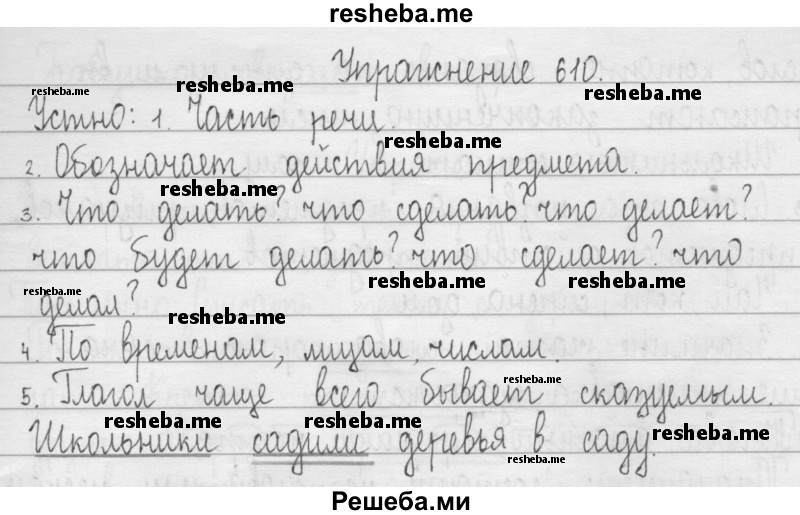 resheba.me
Упражнение 610.
resheba.me resheba.me resheba.me
Устно: 1. Часть речи.
resheba.me
2. Обозначает действия предмета.
resheba.me resheba.me
3. Что делать? что сделать? что делает?
что будет делать? что сделает? что
resheba.me resheba.me resheba.me
делал?
resheba.me resheba.me
4. По временам, лицам, числам.
resheba.me
5. Глагол чаще всего бывает сказуемым.
resheba.me resheba.me resheba.me
Школьники садили деревья в саду.
resheba.me
Решеба.ми